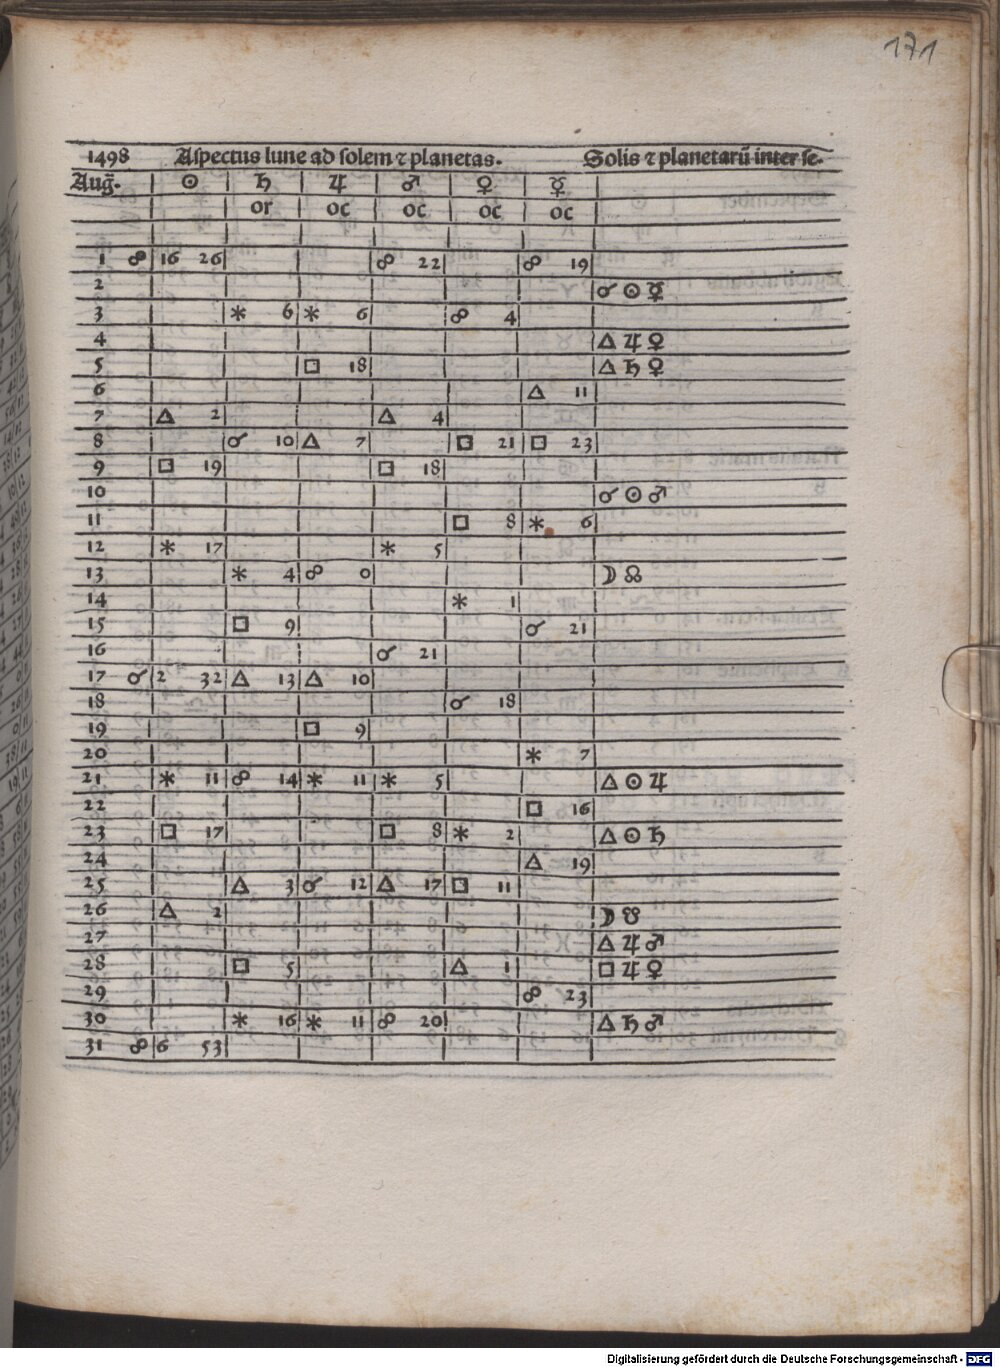 171
1498 Aspectus lune ad solem ⁊ planetas. Solis ⁊ planetarũ inter se.
Aug̃. ☉ ♄ ♃ ♂ ♀ ☿
or oc oc oc oc
1 ☍ 16 26 ☍ 22 ☍ 19
2 ☌ ☉ ☿
3 ⚹ 6 ⚹ 6 ☍ 4
4 △ ♃ ♀
5 □ 18 △ ♄ ♀
6 △ 11
7 △ 2 △ 4
8 ☌ 10 △ 7 □ 21 □ 23
9 □ 19 □ 18
10 ☌ ☉ ♂
11 □ 8 ⚹ 6
12 ⚹ 17 ⚹ 5
13 ⚹ 4 ☍ 0 ☽ ☊
14 ⚹ 1
15 □ 9 ☌ 21
16 ☌ 21
17 ☌ 2 32 △ 13 △ 10
18 ☌ 18
19 □ 9
20 ⚹ 7
21 ⚹ 11 ☍ 14 ⚹ 11 ⚹ 5 △ ☉ ♃
22 □ 16
23 □ 17 □ 8 ⚹ 2 △ ☉ ♄
24 △ 19
25 △ 3 ☌ 12 △ 17 □ 11
26 △ 2 ☽ ☋
27 △ ♃ ♂
28 □ 5 △ 1 □ ♃ ♀
29 ☍ 23
30 ⚹ 16 ⚹ 11 ☍ 20 △ ♄ ♂
31 ☍ 6 53
Digitalisierung gefördert durch die Deutsche Forschungsgemeinschaft - DFG